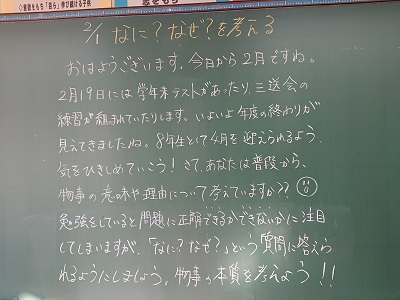 2/1 なに？なぜ？を考える
おはようございます。今日から2月ですね。
2月19日には学年末テストがあったり、三送会の
練習が組まれていたりします。いよいよ年度の終わりが
見えてきましたね。8年生として4月を迎えられるよう、
気をひきしめていこう！さて、あなたは普段から、
物事の意味や理由について考えていますか??
勉強をしていると問題に正解できるかできないかに注目
してしまいますが、「なに？なぜ？」という質問に答えら
れるようにしましょう。物事の本質を考えよう!!